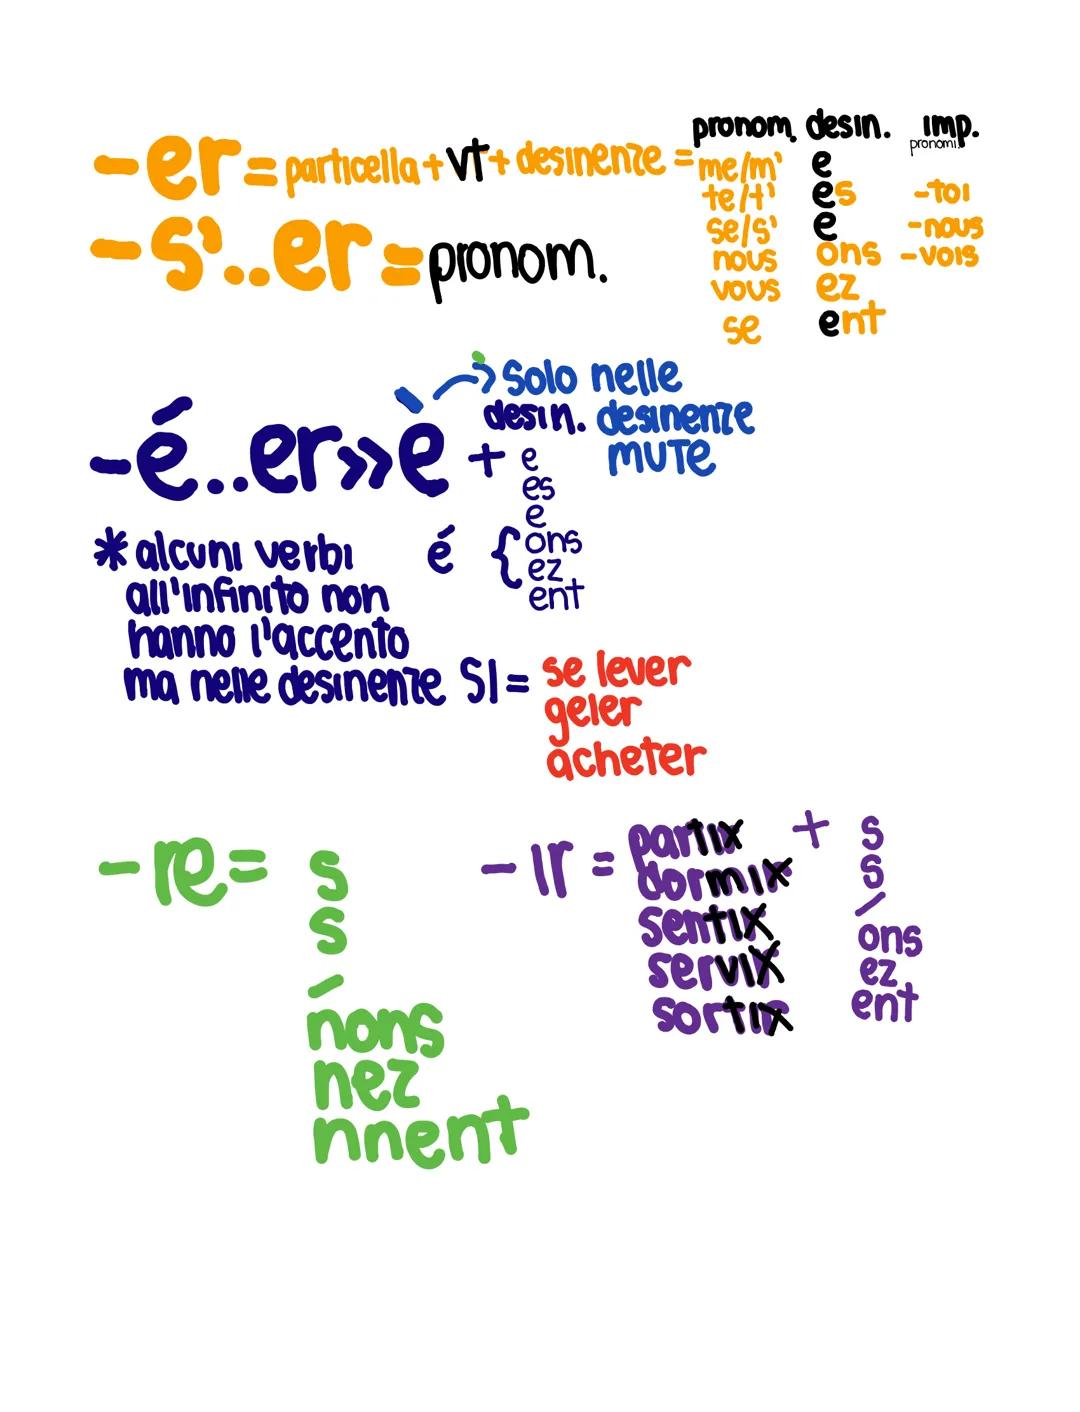 pronom. desin. imp.
pronomi.
-er = particella + vt + desinenze = me/m' e
te/t' es -toi
se/s' e -nous
-s'..er = pronom. nous ons -vois
vous ez
se ent
solo nelle
desin. desinenze
MUTE
-é..er >> è + e
es
e
é { ons
ez
ent
* alcuni verbi
all'infinito non
hanno l'accento
ma nelle desinenze SI = se lever
geler
acheter
-re = s
s
/
nons
nez
nnent
-ir = partir + s
dormir s
sentir /
servir ons
sortir ez
ent